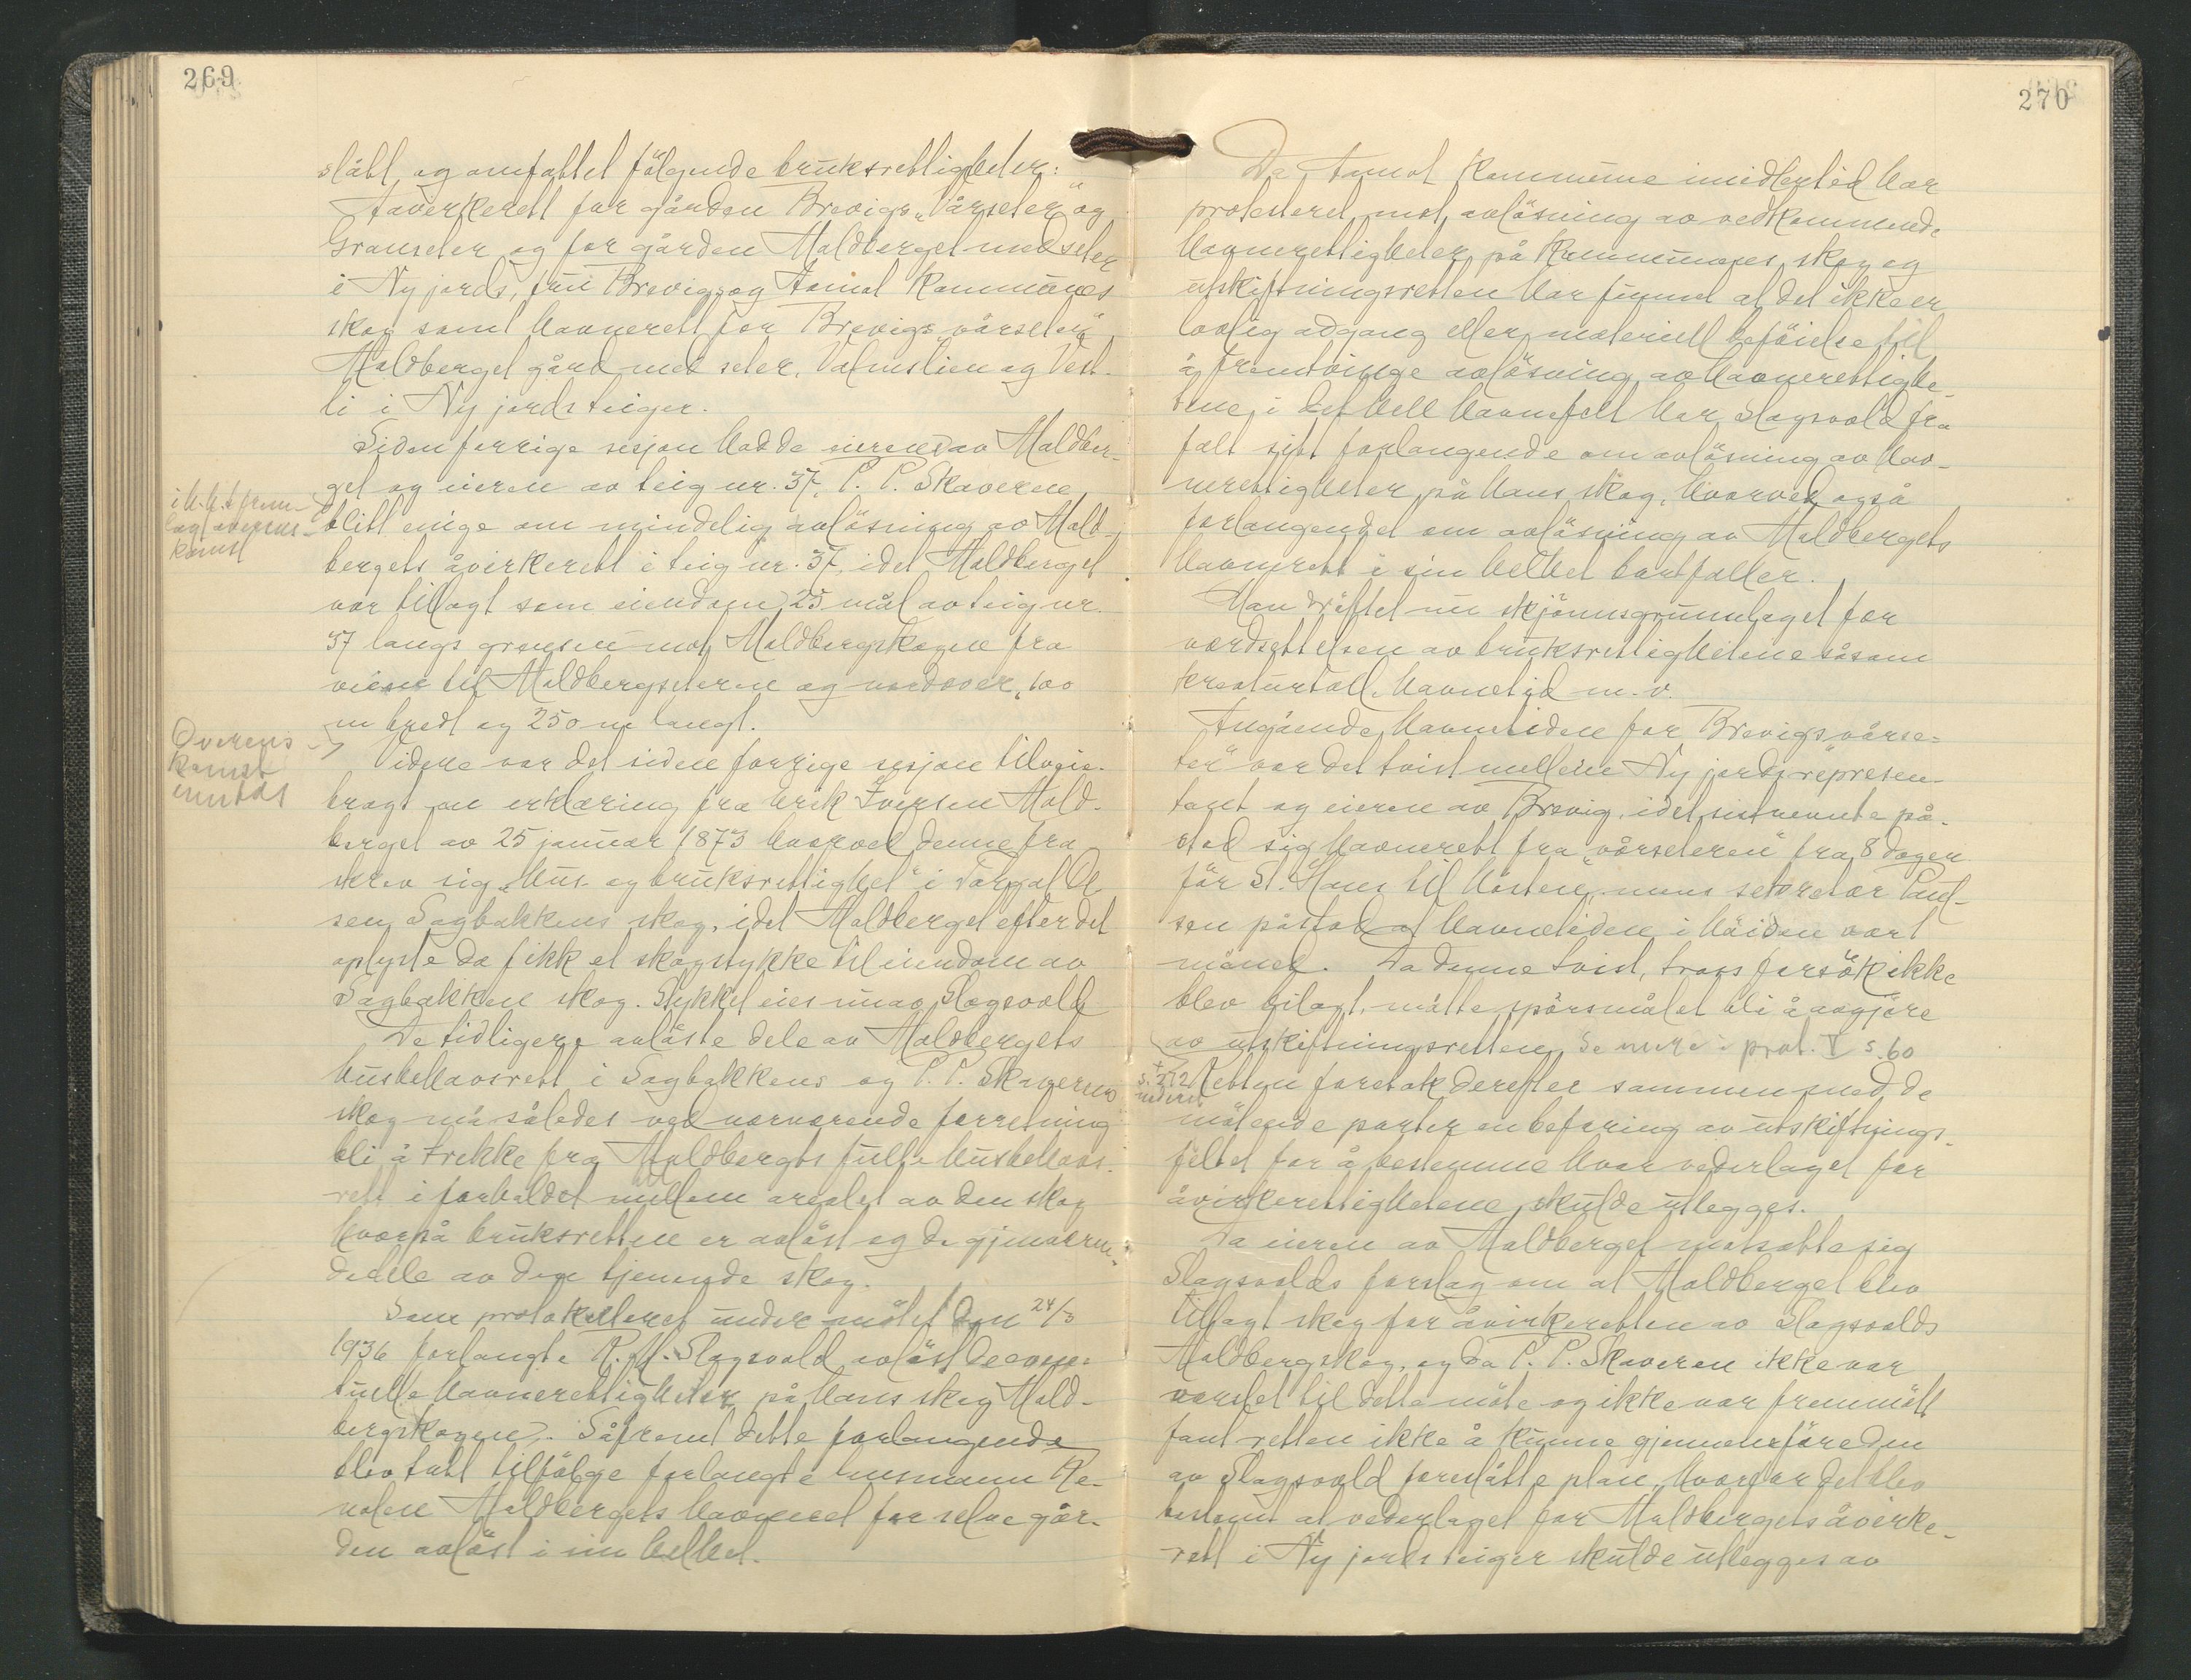 269
slått, og omfattet følgende bruksrettigheter:
Aaverkerett for gården Brevigs "Vårseter" og
Granseter og for gården Maldberget med seter
i Ny jords, Brevigs og Aamot kommunes
skog samt havnerett for Brevigs vårseter,
Maldberget gård med seter, Valmslien og Vest-
li i Ny jords teiger.
Siden forrige sesjon hadde eieren av Maldber-
get og eieren av teig nr. 37, P. P. Skaveren
blitt enige om mindelig avløsning av Mald-
bergets åvirkerett i teig nr. 37, idet Maldberget
var tillagt som eiendom 25 mål av teig nr.
37 langs grensen mot Maldbergskogen fra
veien til Maldbergseteren og nordover, 100
m bredt og 250 m langt.
i h.h.t. frem-
lagt overens-
komst
Overens-
komst
inntas
Videre var det siden forrige sesjon tilveie-
bragt en erklæring fra Erik Iversen Mald-
berget av 25 januar 1873 hvorved denne fra
skrev sig "Hus- og bruksrettighet" i Torgal Ol
sen Sagbakkens skog, idet Maldberget efter det
oplyste da fikk et skogstykke til eiendom av
Sagbakken skog. Stykket eies nu av Slagsvold
De tidligere avløste dele av Maldbergets
husbehovsrett i Sagbakkens og P. P. Skaverens
skog må således ved nærværende forretning
bli å trekke fra Maldbergets fulle husbehovs-
rett i forholdet mellem arealet av den skog
hvorpå bruksretten er avløst og de gjenværen-
de dele av den tjenende skog.
Som protokolleret under møtet den 24/3
1936 forlangte R. M. Slagsvold avløst de even-
tuelle havnerettigheter på hans skog Mald-
bergskogen. Såfremt dette forlangende
blev tatt tilfølge forlangte husmann Re-
nolen Maldbergets havnerett for selve går-
den avløst i sin helhet.
270
Da Aamot kommune imidlertid har
protesteret mot avløsning av vedkommende
havnerettigheter på kommunenes skog og
utskiftningsretten har funnet at det ikke er
lovlig adgang eller materiell beføielse til
å fremtvinge avløsning av havnerettighe-
tene i det hele havnefelt har Slagsvold fra
falt sitt forlangende om avløsning av hav-
nerettigheter på hans skog, hvorved også
forlangendet om avløsning av Maldbergets
havnerett i sin helhet bortfaller.
Man drøftet nu skjønnsgrunnlaget for
verdsettelsen av bruksrettighetene såsom
kreaturtall, havnetid m. v.
Angående havnetiden for Brevigs "vårse-
ter" var det tvist mellem Ny jords represen-
tant og eieren av Brevig, idet sistnevnte på-
stod sig havnerett fra "vårseteren" fra 8 dager
før St. Hans til høsten, mens sekretær Knud-
sen påstod at havnetiden i høiden var 1
måned. Da denne tvist, tross forsøk ikke
blev bilagt, måtte spørsmålet bli å avgjøre
av utskiftningsretten, Se mere i prot. V s. 60
+ s. 272
nedenf.
Retten foretok derefter sammen med de
møtende parter en befaring av utskiftnings-
feltet for å bestemme hvor vederlaget for
åvirkerettighetene skulde utlegges.
Da eieren av Maldberget motsatte sig
Slagsvolds forslag om at Maldberget blev
tillagt skog for åvirkeretten av Slagsvolds
Maldbergskog, og da P. P. Skaveren ikke var
varslet til dette møte og ikke var fremmøtt
fant retten ikke å kunne gjennemføre den
av Slagsvold foreslåtte plan, hvorfor det blev
bestemt at vederlaget for Maldbergets åvirke-
rett i Ny jords teiger skulde utlegges av